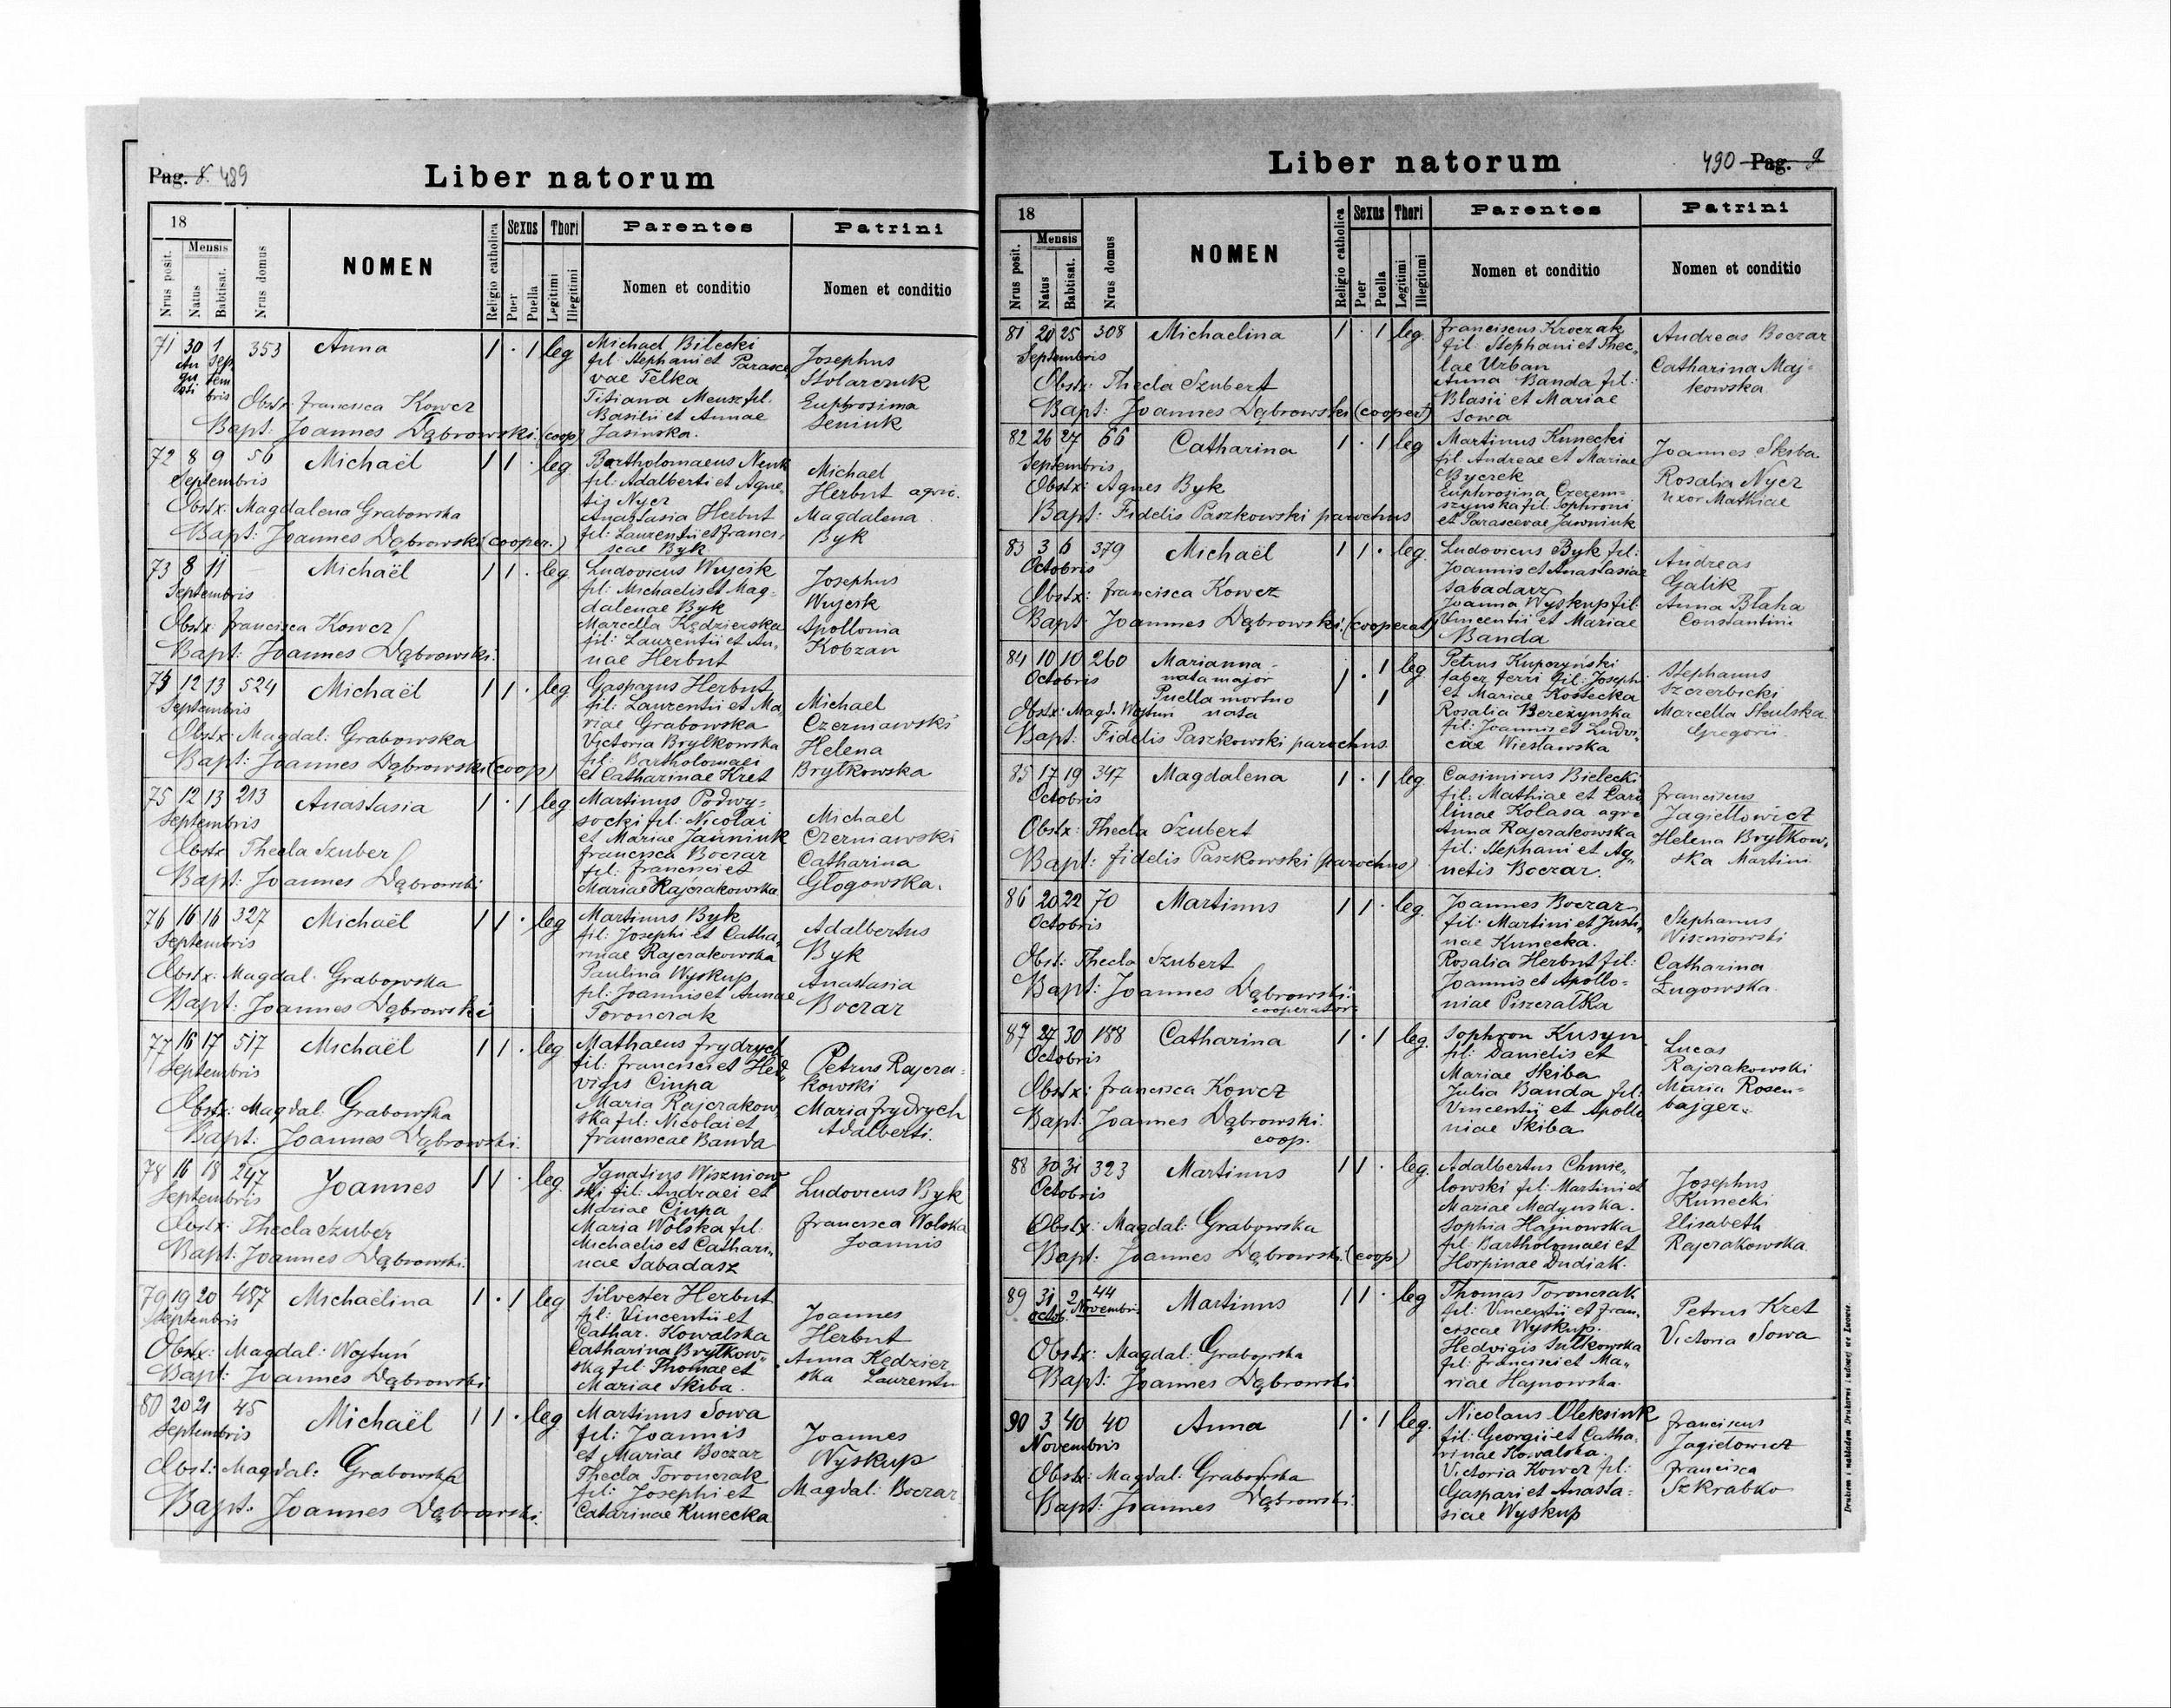 Pag. 8. 489
Liber natorum
18
Nrus posit.
Mensis
Natus
Babtisat.
Nrus domus
NOMEN
Religio catholica
Sexus
Puer
Puella
Thori
Legitimi
Illegitimi
Parentes
Nomen et conditio
Patrini
Nomen et conditio
71 30 1 353 Anna 1 · 1 leg
Au Sep
gu tem
sti bris
Obstx: Francisca Kowcz
Bapt: Joannes Dąbrowski (coop)
Michael Bilecki
fil: Stephani et Parasce
vae Telka
Titiana Meusz fil.
Basilii et Annae
Jasinska.
Josephus
Stolarczuk
Euphrosima
Seniuk
72 8 9 56 Michaël 1 1 · leg
Septembris
Obstx: Magdalena Grabowska
Bapt: Joannes Dąbrowski (cooper.)
Bartholomaeus
fil: Adalberti et Agne-
tis Nycz
Anastasia Herbut
fil: Laurentii et Francis
scae Byk
Michael
Herbut agric.
Magdalena
Byk
73 8 11 Michaël 1 1 · leg
Septembris
Obstx: Francisca Kowcz
Bapt: Joannes Dąbrowski.
Ludovicus Wujcik
fil: Michaelis et Mag-
dalenae Byk
Marcella Kędzierska
fil: Laurentii et An-
nae Herbut
Josephus
Wujcik
Apollonia
Kobzan
74 12 13 524 Michaël 1 1 · leg
Septembris
Obstx: Magdal: Grabowska
Bapt: Joannes Dąbrowski (coop)
Gasparus Herbut
fil: Laurentii et Ma-
riae Grabowska
Victoria Brylkowska
fil: Bartholomaei
et Catharinae Kret
Michael
Czerniawski
Helena
Brylkowska
75 12 13 213 Anastasia 1 · 1 leg
Septembris
Obstx Thecla Szuber
Bapt: Joannes Dąbrowski
Martinus Podwy-
socki fil: Nicolai
et Mariae Jauniuk
Francisca Boczar
fil: Francisci et
Mariae Rajczakowska
Michael
Czerniawski
Catharina
Głogowska.
76 16 16 327 Michaël 1 1 · leg
Septembris
Obstx: Magdal: Grabowska
Bapt: Joannes Dąbrowski
Martinus Byk
fil: Josephi et Catha-
rinae Rajczakowska
Paulina Wyskup
fil: Joannis et Annae
Toronczak
Adalbertus
Byk
Anastasia
Boczar
77 16 17 517 Michaël 1 1 · leg
Septembris
Obstx: Magdal: Grabowska
Bapt: Joannes Dąbrowski.
Mathaeus Frydrych
fil: Francisci et Hed-
vigis Ciupa
Maria Rajczakow-
ska fil: Nicolai et
Franciscae Banda
Petrus Rajcza-
kowski
Maria Frydrych
Adalberti.
78 16 18 247 Joannes 1 1 · leg
Septembris
Obstx: Thecla Szuber
Bapt: Joannes Dąbrowski.
Ignatius Wiszniow
ski fil: Andraei et
Mariae Ciupa
Maria Wolska fil:
Michaelis et Cathari-
nae Sabadasz
Ludovicus Byk
Francisca Wolska
Joannis
79 19 20 487 Michaëlina 1 · 1 leg
Septembris
Obstx: Magdal: Wojtuń
Bapt: Joannes Dąbrowski
Silvester Herbut
fil: Vincentii et
Cathar. Kowalska
Catharina Brytkow-
ska fil: Thomae et
Mariae Skiba.
Joannes
Herbut
Anna Kędzier
ska Laurentii
80 20 21 45 Michaël 1 1 · leg
Septembris
Obst: Magdal: Grabowska
Bapt: Joannes Dąbrowski.
Martinus Sowa
fil: Joannis
et Mariae Boczar
Thecla Toronczak
fil: Josephi et
Catarinae Kunecka
Joannes
Wyskup
Magdal: Boczar
Liber natorum
490 Pag. 9
18
Nrus posit.
Mensis
Natus
Babtisat.
Nrus domus
NOMEN
Religio catholica
Sexus
Puer
Puella
Thori
Legitimi
Illegitimi
Parentes
Nomen et conditio
Patrini
Nomen et conditio
81 20 25 308 Michaelina 1 · 1 leg.
Septembris
Obstx: Thecla Szubert
Bapt: Joannes Dąbrowski (cooper)
Franciscus Kroczak
fil: Stephani et Thec-
lae Urban
Anna Banda fil:
Blasii et Mariae
Sowa
Andreas Boczar
Catharina Maj-
kowska
82 26 27 66 Catharina 1 · 1 leg
Septembris
Obstx: Agnes Byk
Bapt: Fidelis Paszkowski parochus
Martinus Kunecki
fil: Andreae et Mariae
Byczek
Euphrosina Czerem-
szynska fil: Sophroni
et Parascevae Jawniuk
Joannes Skiba
Rosalia Nycz
uxor Mathiae
83 3 6 379 Michaël 1 1 · leg.
Octobris
Obstx: Francisca Kowcz
Bapt: Joannes Dąbrowski. (cooperat)
Ludovicus Byk fil:
Joannis et Anastasiae
Sabadarz
Joanna Wyskup fil:
Vincentii et Mariae
Banda
Andreas
Galik
Anna Błaha
Constantini
84 10 10 260 Marianna - 1 · 1 leg
Octobris nata major
Puella mortuo 1
nata
Obstx: Magd. Wojtun
Bapt: Fidelis Paszkowski parochus.
Petrus Kupczyński
faber ferri fil: Josephi
et Mariae Kostecka
Rosalia Bereżynska
fil: Joannis et Ludvi-
cae Wiesławska
Stephanus
Szczerbicki
Marcella Skulska
Gregorii
85 17 19 347 Magdalena 1 · 1 leg
Octobris
Obstx: Thecla Szubert
Bapt: Fidelis Paszkowski (parochus)
Casimirus Bielecki
fil: Mathiae et Caro
linae Kolasa agric
Anna Rajczakowska
fil: Stephani et Ag-
netis Boczar.
Franciscus
Jagiellowicz
Helena Brylkow-
ska Martini
86 20 22 70 Martinus 1 1 · leg.
Octobris
Obst: Thecla Szubert
Bapt: Joannes Dąbrowski.
cooperator
Joannes Boczar
fil: Martini et Justi-
nae Kunecka.
Rosalia Herbut fil:
Joannis et Apollo-
niae Piszczałka
Stephanus
Wiszniowski
Catharina
Ługowska.
87 27 30 188 Catharina 1 · 1 leg.
Octobris
Obstx: Francisca Kowcz
Bapt: Joannes Dąbrowski.
coop.
Sophron Kusyn
fil: Danielis et
Mariae Skiba
Julia Banda fil:
Vincentii et Apollo
niae Skiba
Lucas
Rajczakowski
Maria Rosen-
bajger.
88 30 31 323 Martinus 1 1 · leg.
Octobris
Obstx: Magdal: Grabowska
Bapt: Joannes Dąbrowski. (coop)
Adalbertus Chmie-
lowski fil: Martini et
Mariae Medynska.
Sophia Hajnowska
fil: Bartholomaei et
Horpinae Dudiak.
Josephus
Kunecki
Elisabeth
Rajczakowska.
89 31 2 44 Martinus 1 1 · leg
octob. Novembris
Obstx: Magdal: Grabowska
Bapt: Joannes Dąbrowski
Thomas Toronczak
fil: Vincentii et Fran-
ciscae Wyskup.
Hedvigis Sulkowska
fil: Francisci et Ma-
riae Hajnowska.
Petrus Kret
Victoria Sowa
90 3 40 40 Anna 1 · 1 leg.
Novembris
Obstx: Magdal: Grabowska
Bapt: Joannes Dąbrowski
Nicolaus Oleksiuk
fil: Georgii et Catha-
rinae Kowalska.
Victoria Kowcz fil:
Gaspari et Anasta-
siae Wyskup
Franciscus
Jagielowicz
Francisca
Szkrabko
Drukiem i nakładem Drukarni ludowej we Lwowie.